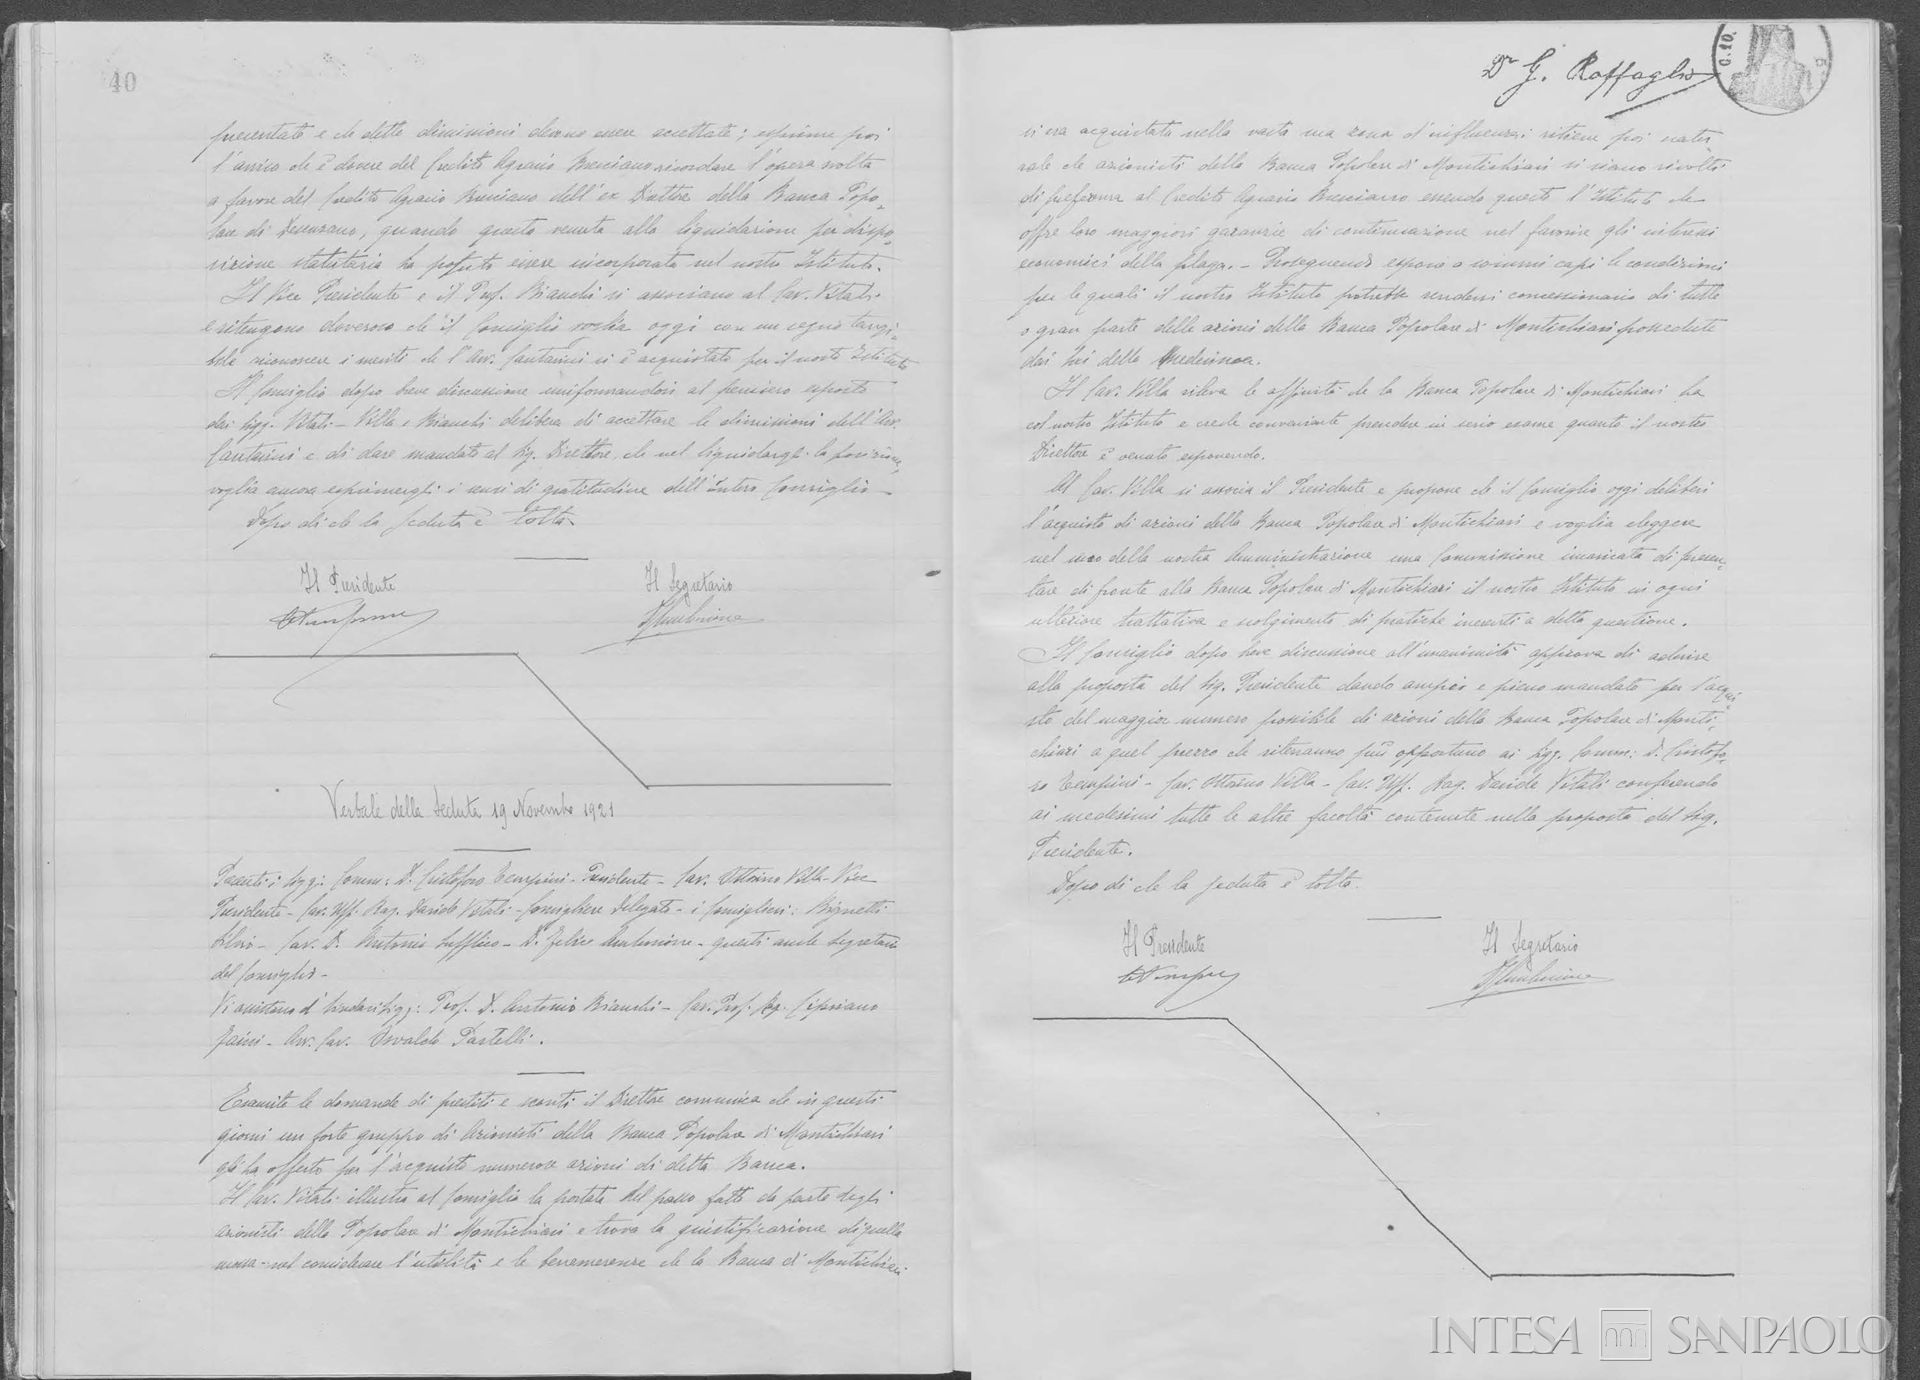 40
presentate e che dette dimissioni devono essere accettate; esprime poi
l'avviso che è dovere del Credito Agrario Bresciano ricordare l'opera svolta
a favore del Credito Agrario Bresciano dell'ex Direttore della Banca Popo-
lare di Desenzano, quando questa venuta alla liquidazione per dispo-
sizione statutaria ha potuto essere incorporata nel nostro Istituto.
Il Vice Presidente e il Prof. Bianchi si associano al Cav. Vitali
e ritengono doveroso che il Consiglio voglia oggi con un segno tangi-
bile riconoscere i meriti che l'Avv. Cantarini si è acquistato per il nostro Istituto
Il Consiglio dopo breve discussione uniformandosi al pensiero esposto
dai Sigg. Vitali - Villa e Bianchi delibera di accettare le dimissioni dell'Avv.
Cantarini e di dare mandato al Sig. Direttore, che nel liquidargli la posizione
voglia ancora esprimergli i sensi di gratitudine dell'intero Consiglio -
Dopo di che la seduta è tolta.
Il Presidente Il Segretario
Verbale della Seduta 19 Novembre 1921
Presenti i Sigg: Comm: D. Cristoforo Tempini - Presidente - Cav. Vittorino Villa - Vice
Presidente - Cav. Uff. Rag. Davide Vitali - Consigliere Delegato - i Consiglieri: Bignetti
Silvio - Cav. D. Antonio - D. Felice - questi anche segretario
del Consiglio -
Vi assistono i Sindaci Sigg: Prof. D. Antonio Bianchi - Cav. Prof. Rag. Cipriano
Zaini - Avv. Cav. Osvaldo Pastelli.
Esaurite le domande di prestiti e sconti il Direttore comunica che in questi
giorni un forte gruppo di Azionisti della Banca Popolare di Montichiari
gli ha offerto per l'acquisto numerose azioni di detta Banca.
Il Cav. Vitali illustra al Consiglio la portata del passo fatto da parte degli
azionisti della Popolare di Montichiari e trova la giustificazione di quella
mossa nel considerare l'utilità e le benemerenze che la Banca di Montichiari
Dr G. Raffaglio
C.10.
si era acquistata nella vasta sua zona d'influenza; ritiene poi natu-
rale che azionisti della Banca Popolare di Montichiari si siano rivolti
di preferenza al Credito Agrario Bresciano essendo questo l'Istituto che
offre loro maggiori garanzie di continuazione nel favorire gli interessi
economici della plaga. - Proseguendo espone a sommi capi le condizioni
per le quali il nostro Istituto potrebbe rendersi concessionario di tutte
o gran parte delle azioni della Banca Popolare di Montichiari possedute
dai soci della medesima.
Il Cav. Villa rileva le affinità che la Banca Popolare di Montichiari ha
col nostro Istituto e crede conveniente prendere in serio esame quanto il nostro
Direttore è venuto esponendo.
Al Cav. Villa si associa il Presidente e propone che il Consiglio oggi deliberi
l'acquisto di azioni della Banca Popolare di Montichiari e voglia eleggere
nel seno della nostra Amministrazione una Commissione incaricata di presen-
tare di fronte alla Banca Popolare di Montichiari il nostro Istituto in ogni
ulteriore trattativa e svolgimento di pratiche inerenti a detta questione.
Il Consiglio dopo breve discussione all'unanimità approva di aderire
alla proposta del Sig. Presidente dando ampio e pieno mandato per l'acqui-
sto del maggior numero possibile di azioni della Banca Popolare di Monti-
chiari a quel prezzo che riterranno più opportuno ai Sigg. Comm: D. Cristofo-
ro Tempini - Cav. Vittorino Villa - Cav. Uff. Rag. Davide Vitali conferendo
ai medesimi tutte le altre facoltà contenute nella proposta del Sig.
Presidente.
Dopo di che la seduta è tolta.
Il Presidente Il Segretario
INTESA SANPAOLO